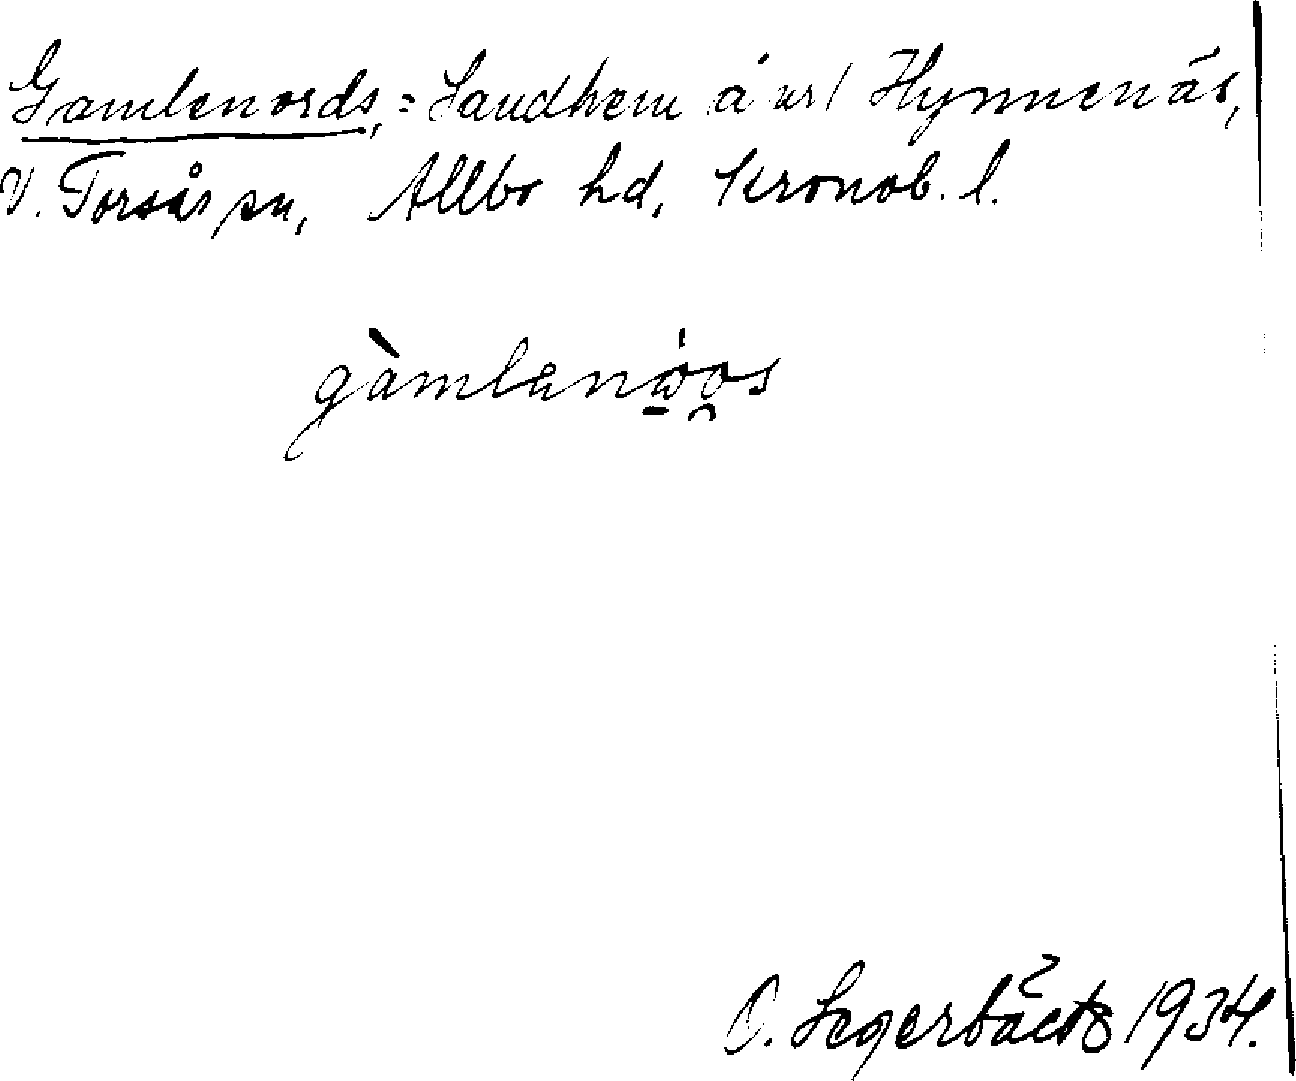 Gamlenords, = Sandhem å nr 1 Hynnenäs,
V. Torsås sn, Allbo hd, Kronob. l.
gàmlanẃo̯s
O. Segerbäck 1934.